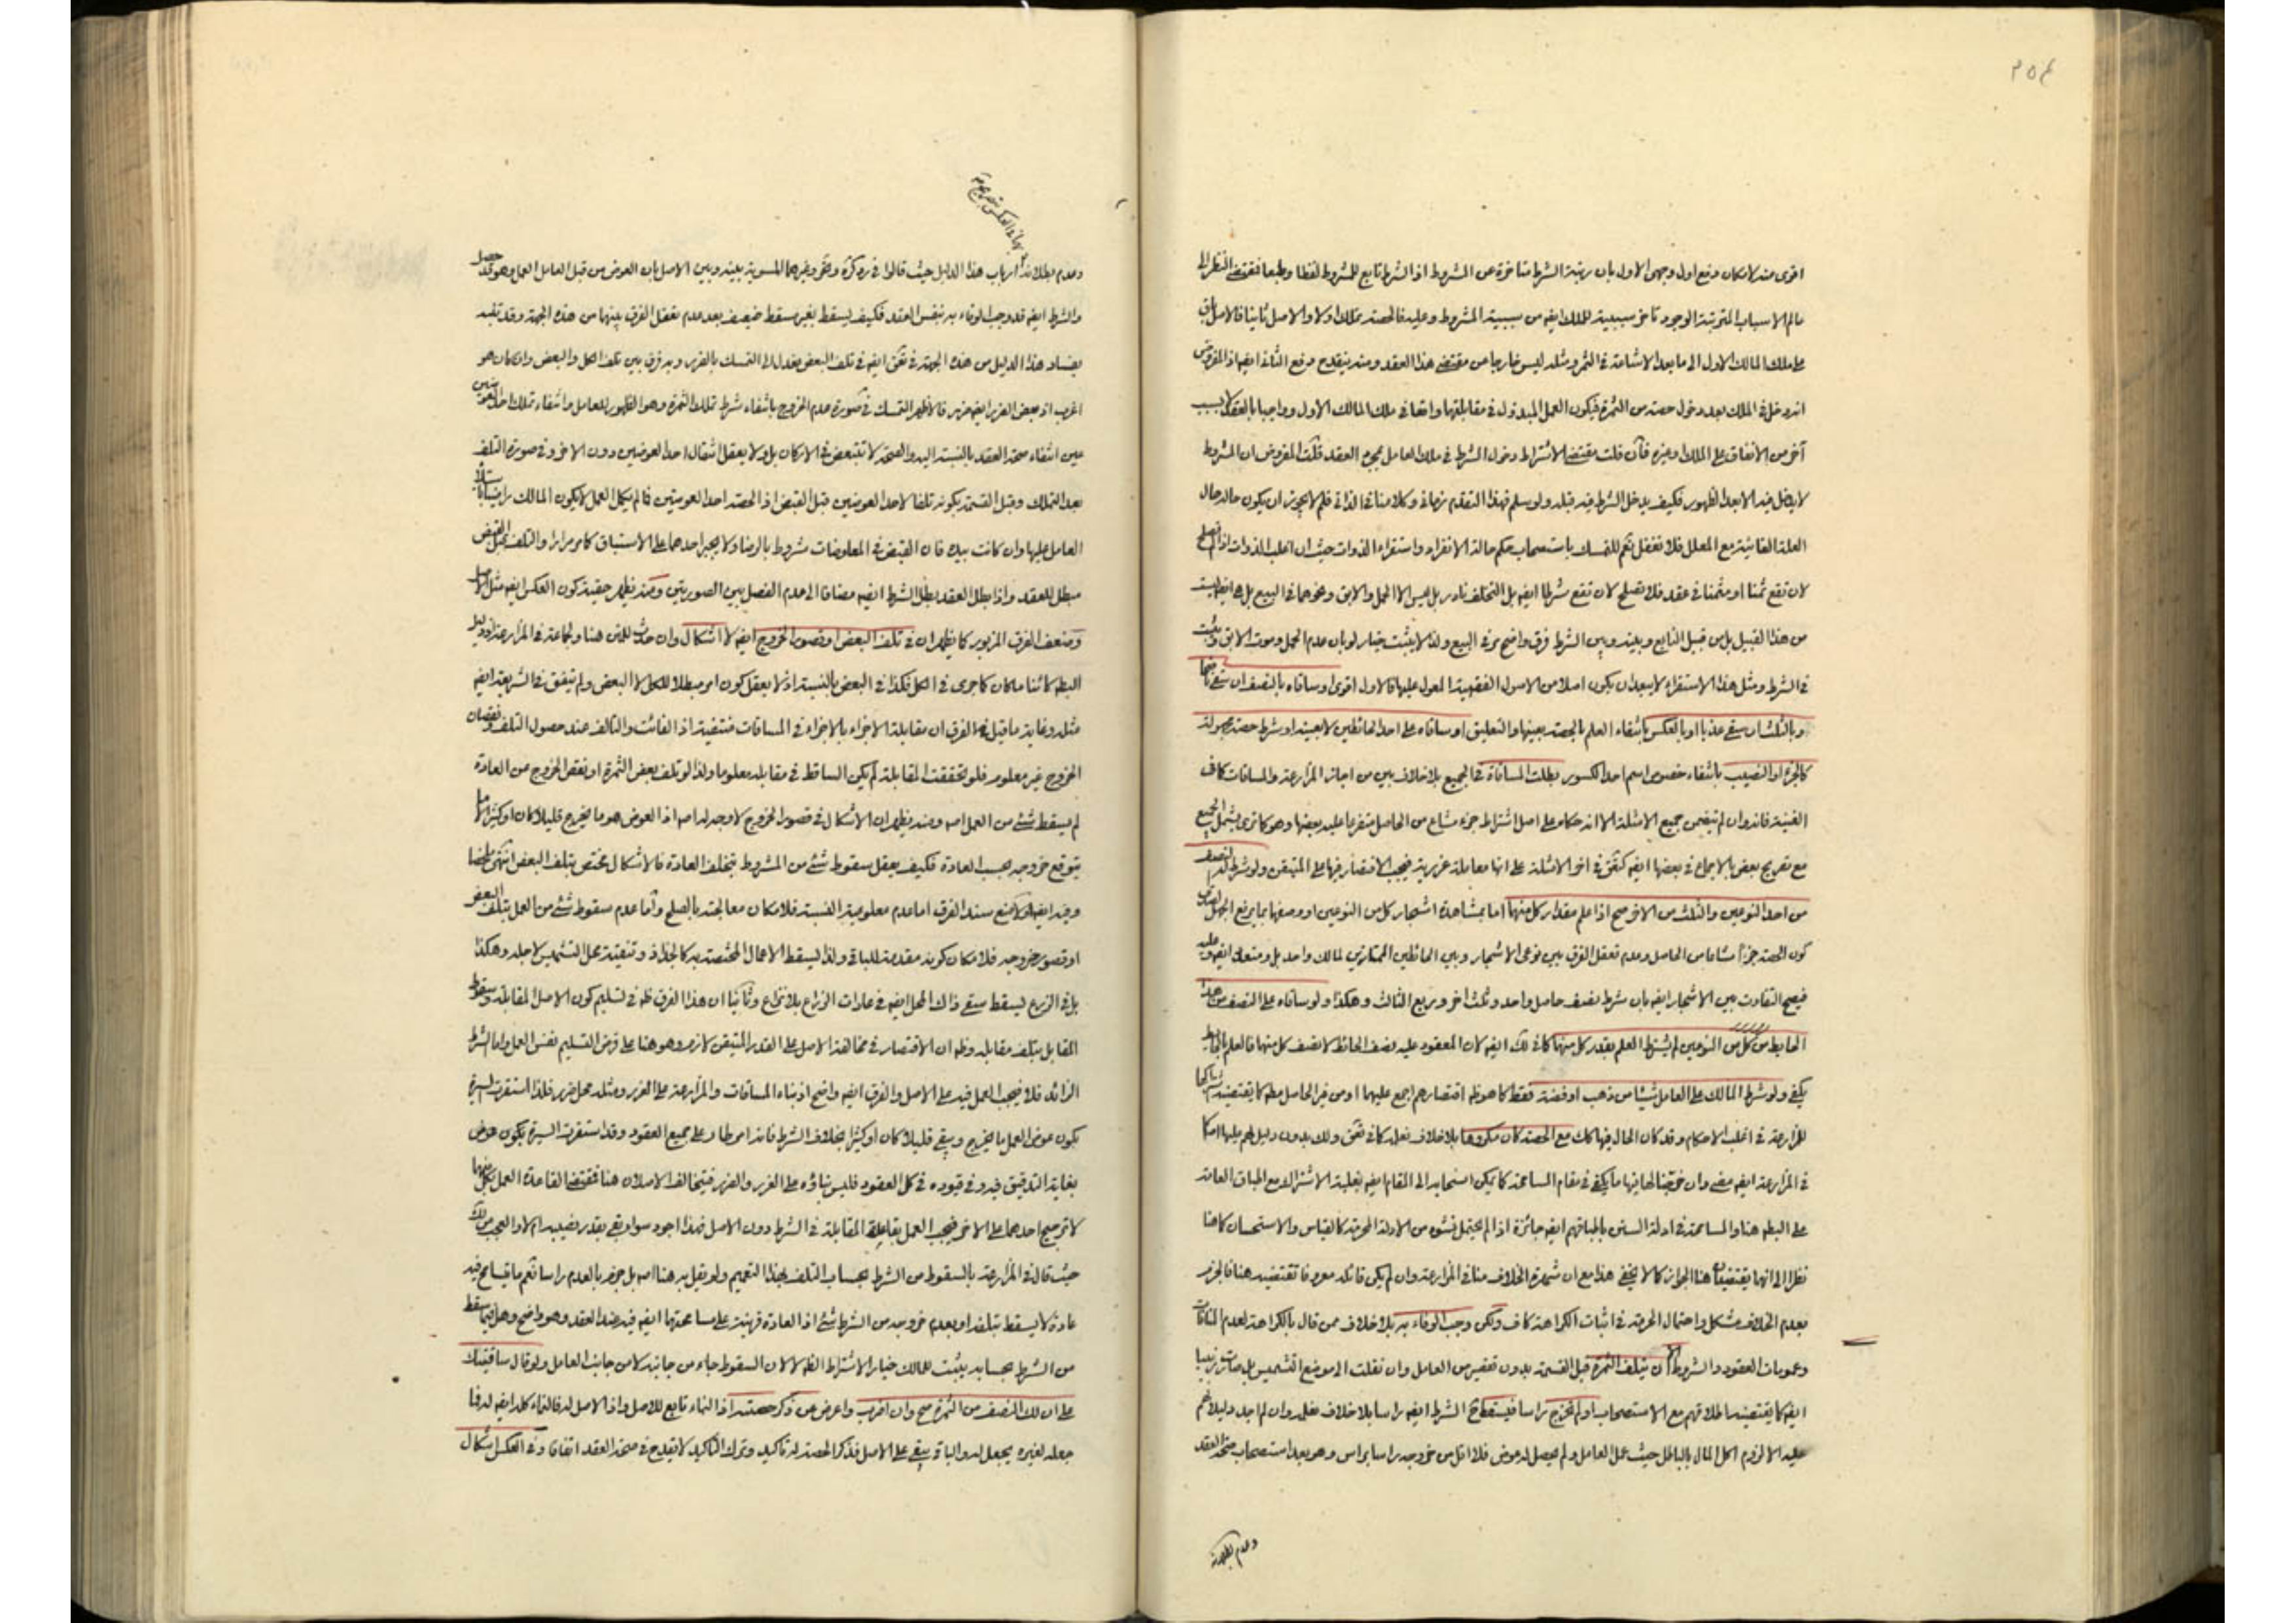 ٢٥٤
اقوى منه لامكان دفع اول وجهى الاول بان رتبة الشرط متاخرة عن المشروط اذ الشرط تابع للمشروط لفظا وطبعا فمقتضى النظر الى
عالم الاسباب المترتبة الوجود تاخر سببية الملك ايضه من سببية المشروط وعليه فالحصة تملك اولا والاصل ثانيا فالاصل باق
على ملك المالك الاول الى ما بعد الاشاعة فى الثمر ومثله ليس خارجا عن مقتضى هذا العقد ومنه ينقدح دفع الثانى ايضه اذ المفروض
انه دخل فى الملك بعد دخول حصة من الثمرة فيكون العمل المبذول فى مقابلتها واقعا فى ملك المالك الاول وواجبا بالعقد لا بسبب
آخر من الانفاق على الملك او غيره فان قلت مقتضى الاشتراط دخول الشرط فى ملك العامل بمجرد العقد قلت المفروض ان المشروط
لا يدخل فيه الا بعد الظهور فكيف يدخل الشرط فيه قبله ولو سلم فهذا التقدم زمانى وكلامنا فى الذاتى فلم لا يجوز ان يكون حاله حال
العلة الغائية مع المعلل فلا تغفل نعم للتمسك باستصحاب حكم حالة الانفراد واستقراء الذوات حيث ان اغلب الذوات اذا لم تصلح
لان تقع ثمنا او مثمنا فى عقد فلا تصلح لان تقع شرطا ايضه بل التخلف نادر بل ليس الا الحمل والابق ونحوهما فى البيع بل هى ايضه ليست
من هذا القبيل بل من قبيل التابع وبينه وبين الشرط فرق واضح عرفى البيع ولذا لا يثبت خيار لو بان عدم الحمل وموت الابق ويثبت
فى الشرط ومثل هذا الاستقراء لا يبعد ان يكون اصلا من الاصول الفقهية المعول عليها فالاول اقوى او ساقاه بالنصف ان سقى ناضحا
و بالثلث ان سقى عذبا او بالعكس بانتفاء العلم بالحصة بعينها والتعليق او ساقاه على احد الحائطين لا بعينه او شرط حصة مجهولة
كالجزء او النصيب بانتفاء خصوص اسم احد الكسور بطلت المساقاة فى الجميع بلا خلاف بين من اجاز المزارعة والمساقات كما فى
الغنية فانه وان لم يتضمن جميع الامثلة الا انه حكاه على اصل اشتراط جزء مشاع من الحاصل متفرعا عليه بعضها وهو كما ترى يشمل الجميع
مع تصريح بعض بالاجماع فى بعضها ايضه كتقق فى اخر الامثلة على انها معاملة غررية فيجب الاقتصار فيها على المتيقن ولو شرط له النصف
من احد النوعين والثلث من الاخر صح اذا علم مقدار كل منهما اما بمشاهدة اشجار كل من النوعين او وصفها بما يرفع الجهل لصدق
كون الحصة جزءا مشاعا من الحاصل وعدم تعقل الفرق بين نوعى الاشجار وبين الحائطين الممتازين لمالك واحد بل ومتعدد ايضه وعليه
فيصح التفاوت بين الاشجار ايضه بان شرط نصف حاصل واحد وثلث اخر وربع الثالث وهكذا ولو ساقاه على النصف من هذا
الحايط من كل من النوعين لم يشترط العلم بقدر كل منهما كما فى كك ايضه لان المعقود عليه نصف الحائط لا نصف كل منهما فالعلم بالحايط
يكفى ولو شرط المالك على العامل شيئا من ذهب او فضة فقط كما هو ظه اقتصارهم اجمع عليهما او من غير الحاصل مطه كما يقتضيه مشاركتها
للمزارعة فى اغلب الاحكام وقد كان الحال فيها كك مع الحصة كان مكروها بلا خلاف نعلمه كما فى تقق وكك بدون دليل لهم عليها امكا
فى المزارعة ايضه مضى وان خرجنا لها فيها ما يكفى فى مقام المسامحة كما يمكن انسحابه الى المقام ايضه بغلبة الاشتراك مع اطباق العامة
على البطه هنا والمسامحة فى ادلة السنن باطباقهم ايضه جائزة اذا لم يحتمل نشوه من الادلة المحرمة كالقياس والاستحسان كما هنا
نظرا الى انهما يقتضيان هنا الجواز كما لا يخفى هذا مع ان شهرة الخلاف منا فى المزارعة وان لم يكن قائله معروفا تقتضيه هنا فالجزم
بعدم الخلاف مشكل واحتمال الحرمة فى اثبات الكراهة كاف ولكن وجب الوفاء به بلا خلاف ممن قال بالكراهة لعدم المنافات
وعمومات العقود والشروط الا ان يتلف الثمرة قبل القسمة بدون تقصير من العامل وان نقلت الى موضع التشميس بل صارت زبيبا
ايضه كما يقتضيه اطلاقهم مع الاستصحاب او لم تخرج راسا فيسقط ح الشرط ايضه راسا بلا خلاف نعلمه وان لم اجد دليلا لهم
عليه الا لزوم اكل المال بالباطل حيث عمل العامل ولم يحصل له عوض فلا اقل من خروجه راسا براس وهو بعد استصحاب صحة العقد
وعدم بطلانه
وعدم بطلانه ارباب هذا الدليل حيث قالوا فى ره كرة وخر وغيرهما المسوية بينه وبين الاصل بان العوض من قبل العامل العمل وهو قد حصل
والشرط ايضه قد وجب الوفاء به بنفس العقد فكيف يسقط بغير مسقط ضعيف بعد عدم تعقل الفرق بينهما من هذه الجهة وقد تنبه
بفساد هذا الدليل من هذه الجهة فى تقق ايضه فى تلف البعض بعدل الى التمسك بالضرر وبه فرق بين تلف الكل والبعض وان كان هو
اغرب اذ بعض الضرر ايضه ضرر فالاظهر التمسك فى صورة عدم الخروج بانتفاء شرط تملك الثمرة وهو الظهور للعامل وانتفاء تملك احد العوضين
عين انتفاء صحة العقد بالنسبة اليه والصحة لا تتبعض فى الاركان بل ولا يعقل انتقال احد العوضين دون الاخر وفى صورة التلف
بعد التملك وقبل القسمة بكونه تلفا لاحد العوضين قبل القبض اذ الحصة احد العوضين فما لم يكمل العمل لا يكون المالك راضيا باستيلاء
العامل عليها وان كانت بيده فان القبض فى المعاوضات مشروط بالرضا ولا يجبر احدهما على الاستباق كما مر مرارا والتلف قبل القبض
مبطل للعقد واذا بطل العقد بطل الشرط ايضه مضافا الى عدم الفصل بين الصورتين ومنه يظهر حقيقة كون العكس ايضه مثل الاصل
وضعف الفرق المزبور كما يظهر ان فى تلف البعض او قصور الخروج ايضه لا اشكال وان حدث للمص هنا ولجماعة فى المزارعة اذ دليل
البطه كائنا ما كان كما جرى فى الكل فكذا فى البعض بالنسبة اذ لا يعقل كون امر مبطلا للكل لا البعض ولم يتفق فى الشريعة ايضه
مثله وغاية ما قيل فى الفرق ان مقابلة الاجزاء بالاجزاء فى المساقات منتفية اذ الفائت والتالف عند حصول التلف ونقصان
الخروج غير معلوم فلو تحققت المقابلة لم يكن الساقط فى مقابله معلوما ولذا لو تلف بعض الثمرة او نقص الخروج من العادة
لم يسقط شئ من العمل اصه ومنه يظهر ان الاشكال فى قصور الخروج لا وجه له اصه اذ العوض هو ما يخرج قليلا كان او كثيرا لا ما
يتوقع خروجه بحسب العادة فكيف يعقل سقوط شئ من المشروط بتخلف العادة فالاشكال مختص بتلف البعض انتهى ملخصا
وفيه ايضه اولا منع سند الفرق اما عدم معلومية النسبة فلامكان معالجته بالصلح واما عدم سقوط شئ من العمل بتلف البعض
او قصور خروجه فلامكان كونه مقدمة للباقى ولذا يسقط الاعمال المختصة به كالجذاذ وتنقيته محل التشميس لاجله وهكذا
بل فى الزرع يسقط سقى ذاك المحل ايضه فى عادات الزراع بلا نزاع وثانيا ان هذا الفرق ظه فى تسليم كون الاصل المقابلة وسقوط
المقابل بتلف مقابله وظه ان الاقتصار فى مخالفة الاصل على القدر المتيقن لازم وهو هنا على فرض التسليم نفس العمل واما الشرط
الزائد فلا فيجب العمل فيه على الاصل والفرق ايضه واضح اذ بناء المساقات والمزارعة على الغرر ومثله محل ضرر فلذا استقرت السيرة
بكون عوض العمل ما يخرج ويبقى قليلا كان او كثيرا بخلاف الشرط فانه امر طار على جميع العقود وقد استقرت السيرة بكون عوض
بغاية التدقيق فيه وفى قيوده فى كل العقود فليس بناؤه على الغرر والضرر فيتخالف الاصلان هنا فمقتضى القاعدة العمل بكل منهما
لا ترجيح احدهما على الاخر فيجب العمل بقاعدة المقابلة فى الشرط دون الاصل فهذا اجود سواء بقى بقدر نصيبه ام لا والعجب من لك
حيث قال فى المزارعة بالسقوط من الشرط بحساب التلف بهذا التعميم ولو يقل به هنا اصه بل جزم بالعدم راسا نعم ما يتسامح فيه
عادة لا يسقط بتلفه او بعدم خروجه من الشرط شئ اذ العادة قرينة على مسامحتهما ايضه فيه ضد العقد وهو واضح وهل فيما سقط
من الشرط بحسابه يثبت للمالك خيار الاشتراط الظه لا لان السقوط جاء من جانبه لا من جانب العامل ولو قال ساقيتك
على ان لك النصف من الثمرة صح وان اضرب واعرض عن ذكر حصته اذ النماء تابع للاصل واذ الاصل له فالنماء كله ايضه له فما
جعله لغيره يجعل له والباقى يبقى على الاصل فذكر الحصة له تاكيد وترك التاكيد لا يقدح فى صحة العقد اتفاقا وفى العكس اشكال